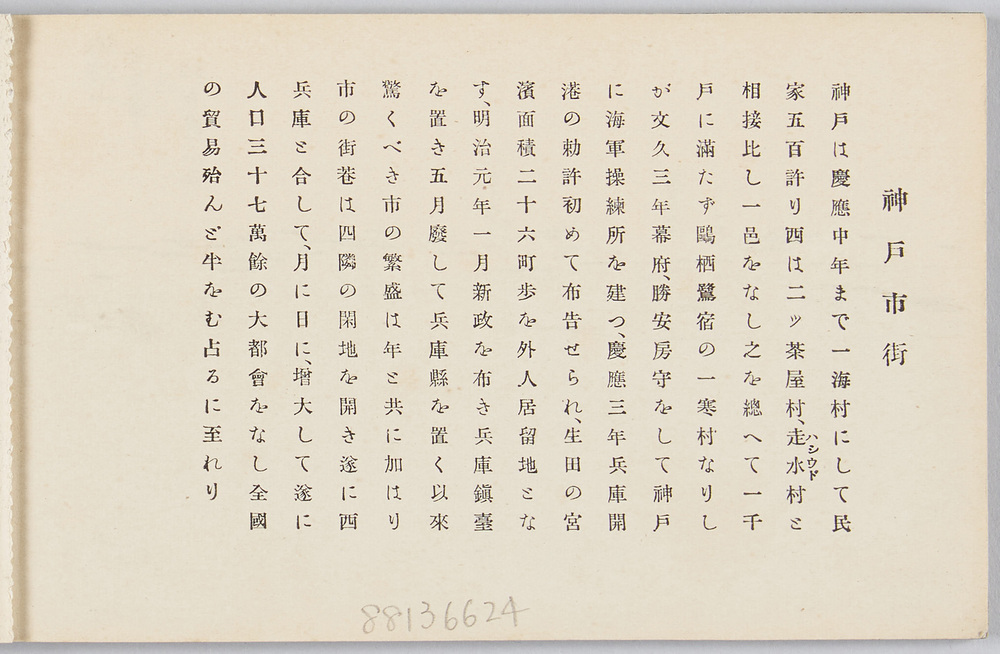 神戸市街
神戸は慶應中年まで一海村にして民
家五百許り西は二ッ茶屋村、走水村と
ハシウド
相接比し一邑をなし之を總へて一千
戸に滿たず鷗栖鷺宿の一寒村なりし
が文久三年幕府、勝安房守をして神戸
に海軍操練所を建つ、慶應三年兵庫開
港の勅許初めて布告せられ、生田の宮
濱面積二十六町步を外人居留地とな
す、明治元年一月新政を布き兵庫鎭臺
を置き五月廢して兵庫縣を置く以來
驚くべき市の繁盛は年と共に加はり
市の街巷は四隣の閑地を開き遂に西
兵庫と合して、月に日に、增大して遂に
人口三十七萬餘の大都會をなし全國
の貿易殆んど半をむ占るに至れり
88136624